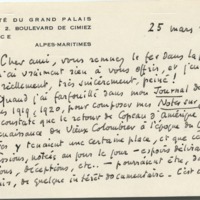 TÉ DU GRAND PALAIS
2, BOULEVARD DE CIMIEZ
CE
ALPES-MARITIMES
25 mars
Cher ami, vous remuez le fer dans la
ai vraiment rien à vous offrir, et j'
réellement, très sincèrement, peiné !
Quand j'ai farfouillé dans mon Journal d
1919, 1920, pour composer mes Notes sur
constaté que le retour de Copeau d'Amérique
naissance du Vieux Colombier à l'époque du
y tenaient une certaine place, et que
notées au jour le jour – espoirs
ions, déceptions, etc. – pourraient être,
de quelque intérêt documentaire. C'est